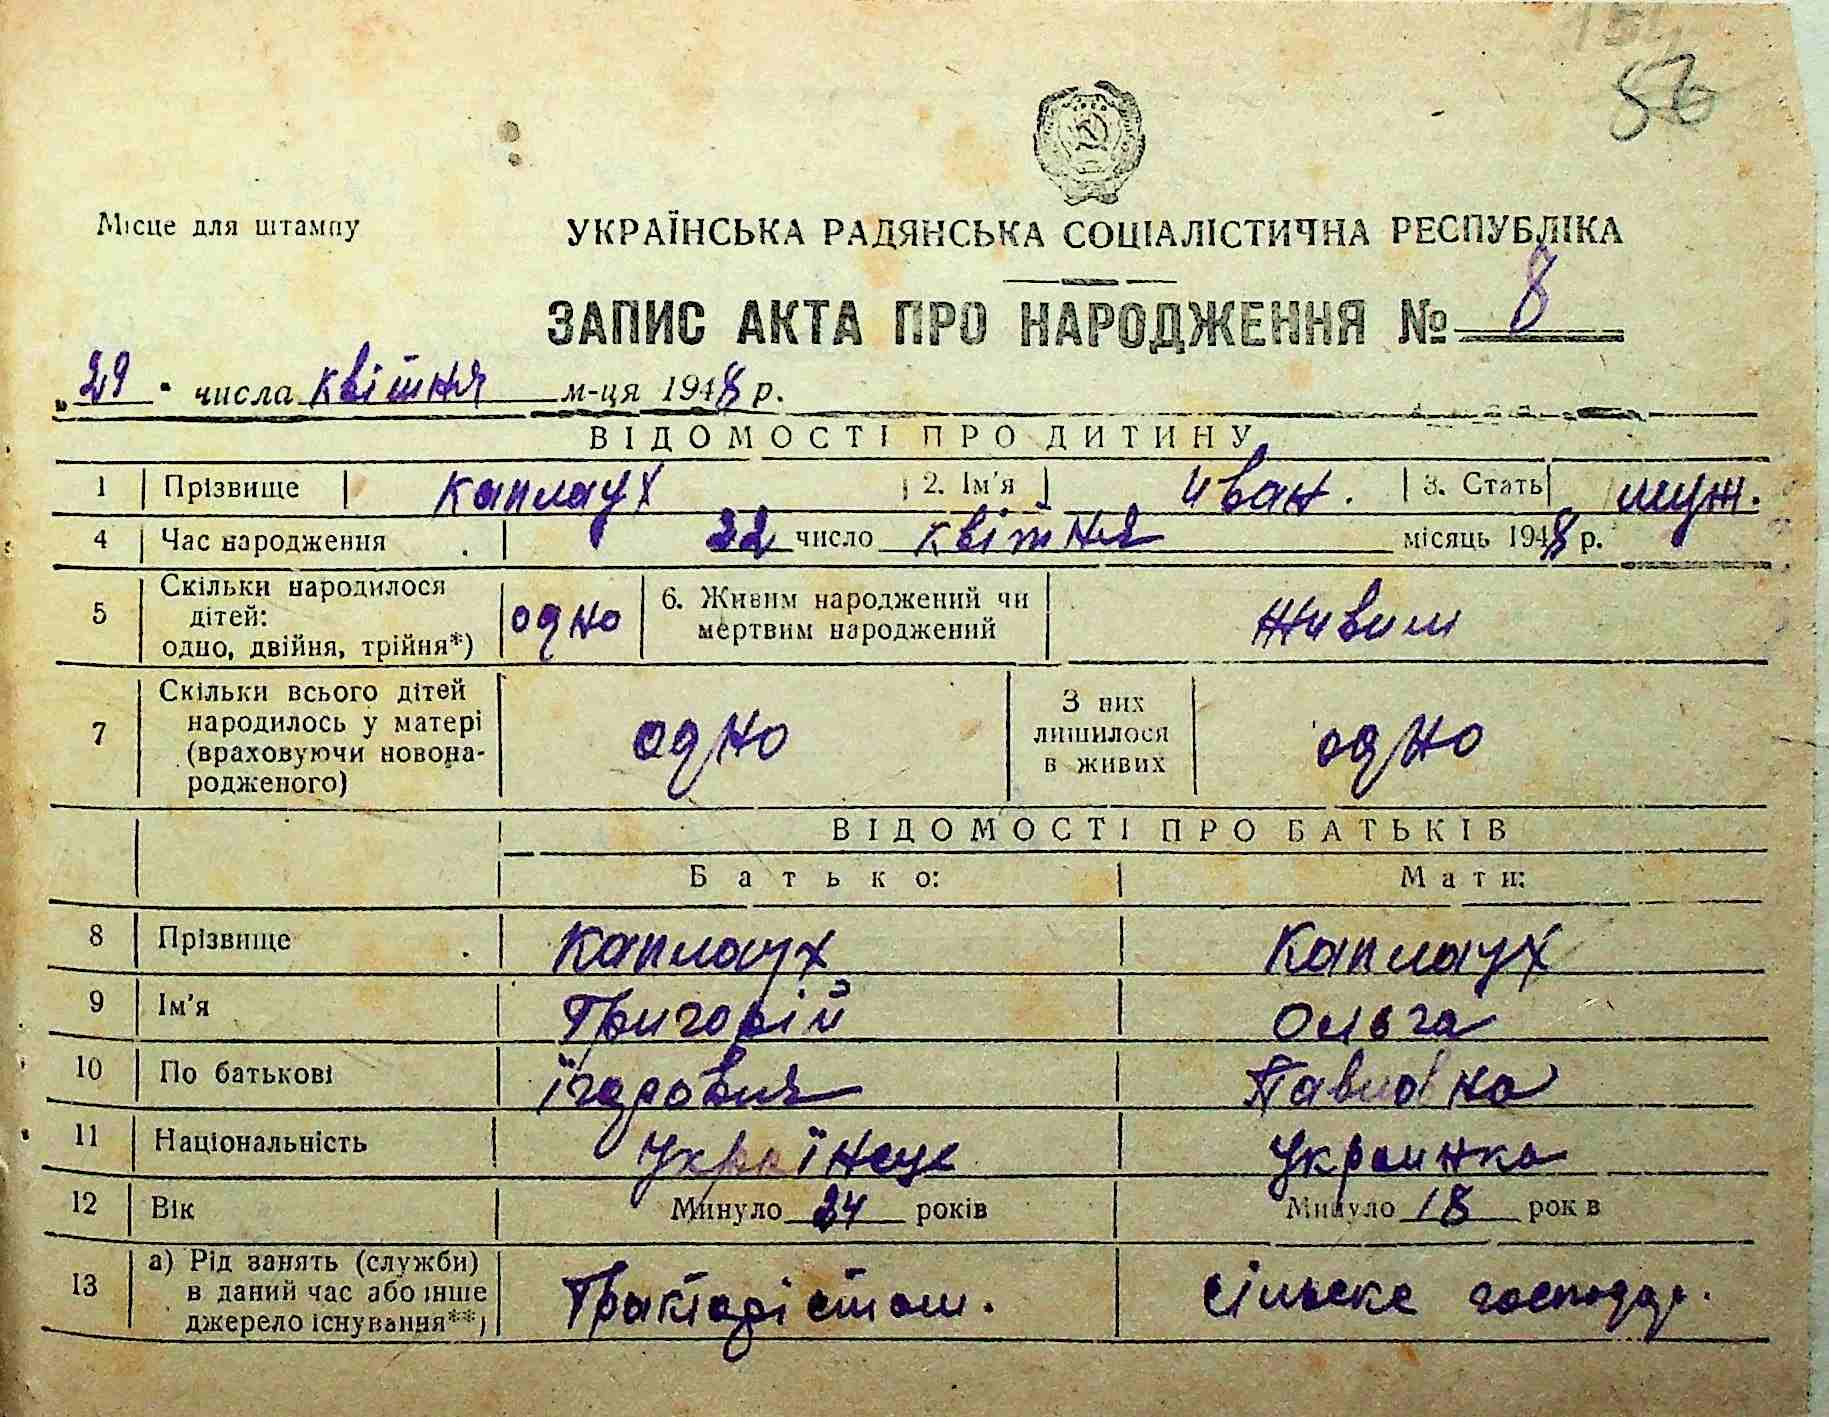 56
Місце для штампу
УКРАЇНСЬКА РАДЯНСЬКА СОЦІАЛІСТИЧНА РЕСПУБЛІКА
ЗАПИС АКТА ПРО НАРОДЖЕННЯ № 8
„29" числа квітня м-ця 1948 р.
ВІДОМОСТІ ПРО ДИТИНУ
1 Прізвище Каплаух 2. Ім'я Иван. 3. Стать муж.
4 Час народження 22 число квітня місяць 1948 р.
5 Скільки народилося дітей: одно, двійня, трійня*) одно 6. Живим народжений чи мертвим народжений живим
7 Скільки всього дітей народилось у матері (враховуючи новонародженого) одно З них лишилося в живих одно
ВІДОМОСТІ ПРО БАТЬКІВ
Батько: Мати:
8 Прізвище Каплаух Каплаух
9 Ім'я Григорій Ольга
10 По батькові Павловна
11 Національність Українець Украинка
12 Вік Минуло 24 років Минуло 18 років
13 а) Рід занять (служби) в даний час або інше джерело існування**) Тракторістом. сільске господар.